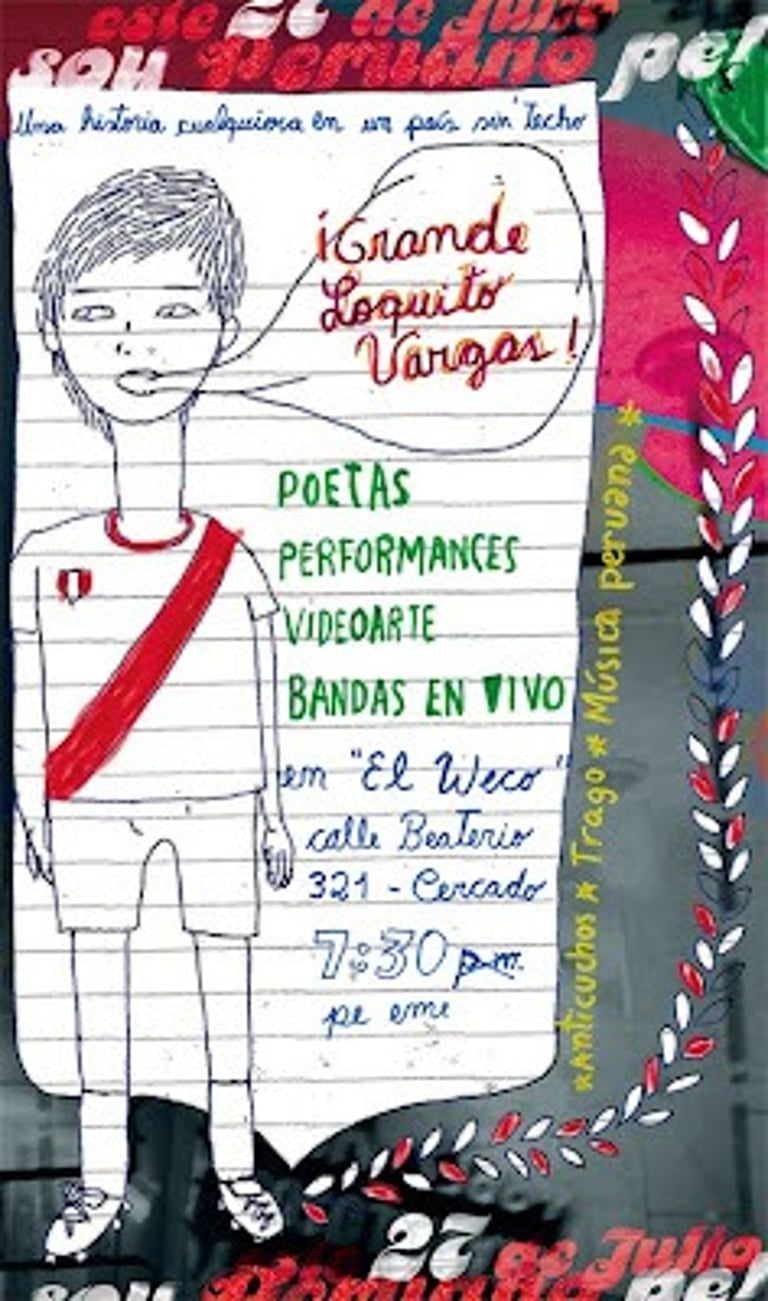 este 27 de Julio
soy Peruano pe!
Una historia cualquiera en un país sin Techo
¡Grande
Loquito
Vargas!
POETAS
PERFORMANCES
VIDEOARTE
BANDAS EN VIVO
en "El Weco"
calle Beaterio
321 - Cercado
7:30 p.m.
pe eme
*Anticuchos * Trago * Música peruana *
este 27 de Julio
soy Peruano pe!